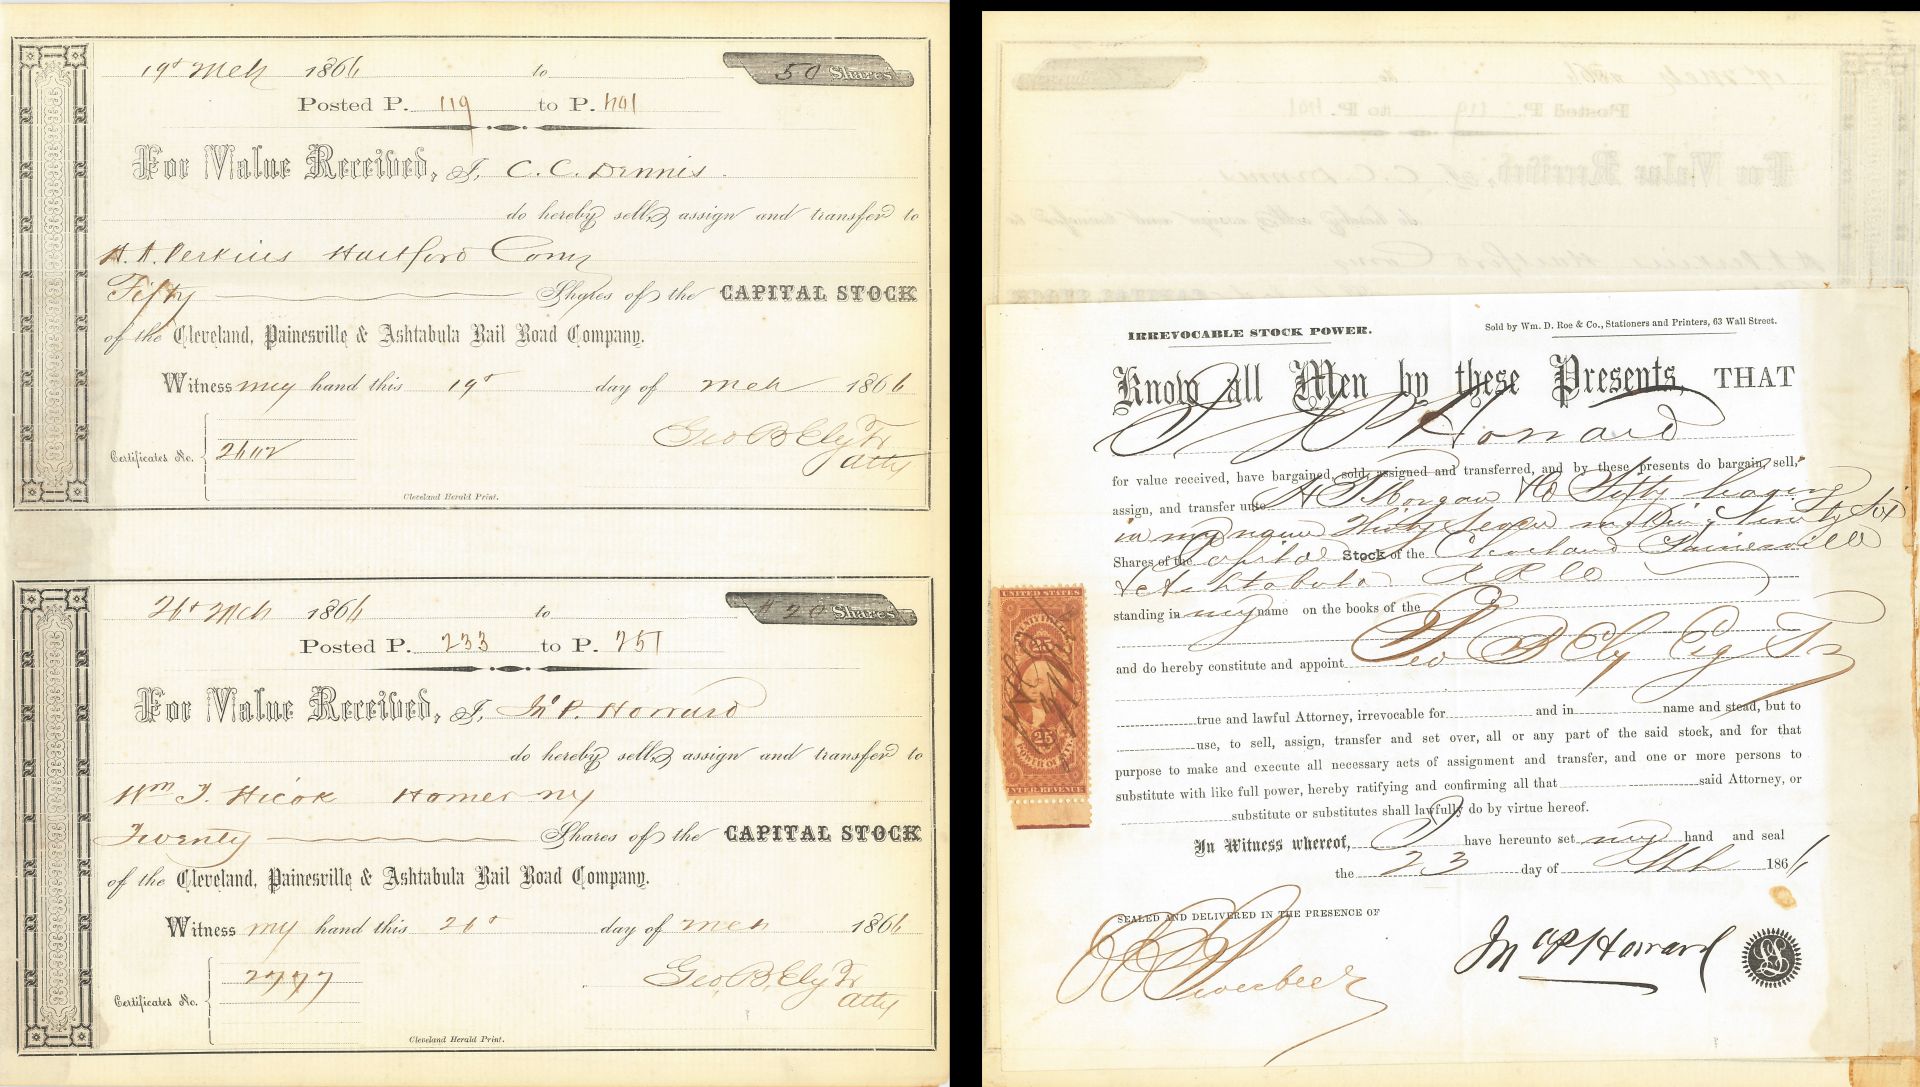 19th Mch 1866 to 50 Shares
Posted P. 119 to P. 401
For Value Received, I, C. C. Dennis
do hereby sell, assign and transfer to
H. A. Perkins Hartford Conn
Fifty Shares of the CAPITAL STOCK
of the Cleveland, Painesville & Ashtabula Rail Road Company.
Witness my hand this 19th day of Mch 1866
Geo B. Ely Tr
Certificates No.
Atty
Cleveland Herald Print.
26th Mch 1866 to 20 Shares
Posted P. 233 to P. 251
For Value Received, I, Jn° P. Howard
do hereby sell, assign and transfer to
Wm T. Hicok Homer NY
Twenty Shares of the CAPITAL STOCK
of the Cleveland, Painesville & Ashtabula Rail Road Company.
Witness my hand this 26th day of Mch 1866
2797 Geo. B. Ely Tr
Certificates No. Atty
Cleveland Herald Print.
IRREVOCABLE STOCK POWER. Sold by Wm. D. Roe & Co., Stationers and Printers, 63 Wall Street.
Know all Men by these Presents, THAT
I J P Howard
for value received, have bargained, sold, assigned and transferred, and by these presents do bargain, sell,
assign, and transfer unto H T Morgan & Co Fifty
in my name Thirty Seven Ninety Six
Shares of the Capital Stock of the Cleveland Painesville
& Ashtabula R R Co
standing in my name on the books of the Co
and do hereby constitute and appoint Geo B Ely Esq Tr
true and lawful Attorney, irrevocable for and in name and stead, but to
use, to sell, assign, transfer and set over, all or any part of the said stock, and for that
purpose to make and execute all necessary acts of assignment and transfer, and one or more persons to
substitute with like full power, hereby ratifying and confirming all that said Attorney, or
substitute or substitutes shall lawfully do by virtue hereof.
In Witness whereof, I have hereunto set my hand and seal
the 23 day of Mch 1866
SEALED AND DELIVERED IN THE PRESENCE OF
Jn° P Howard
LS
UNITED STATES
25
25
POWER OF ATT'Y
INTER. REVENUE